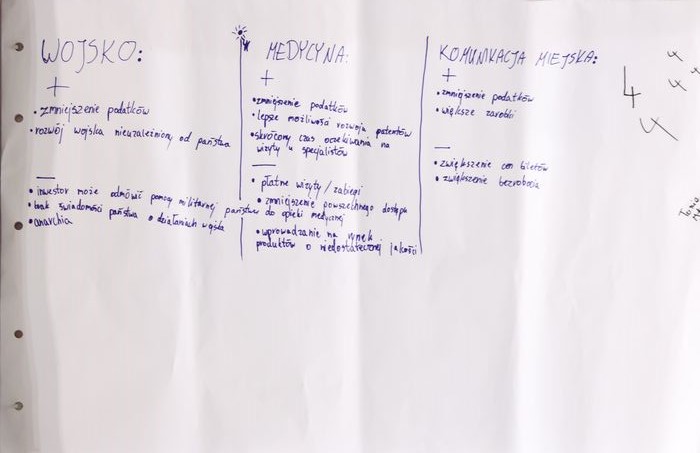 WOJSKO:
+
• zmniejszenie podatków
• rozwój wojska nieuzależniony od państwa
—
• inwestor może odmówić pomocy militarnej państwu
• brak świadomości państwa o działaniach wojska
• anarchia
MEDYCYNA:
+
• zmniejszenie podatków
• lepsze możliwości rozwoju, patentów
• skrócony czas oczekiwania na
wizyty u specjalistów
—
• płatne wizyty / zabiegi
• zmniejszenie powszechnego dostępu
do opieki medycznej
• wprowadzanie na rynek
produktów o niedostatecznej jakości
KOMUNIKACJA MIEJSKA:
+
• zmniejszenie podatków
• większe zarobki
—
• zwiększenie cen biletów
• zwiększenie bezrobocia
4
4
4
4
4